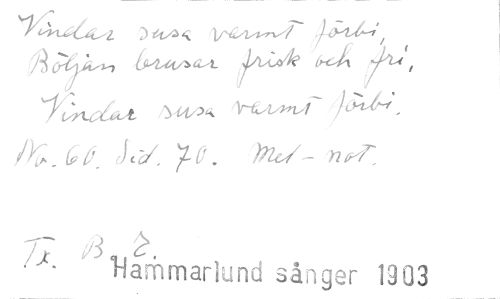 Vindar susa varmt förbi,
Böljan brusar frisk och fri,
Vindar susa varmt förbi.
No. 60. Sid. 70. Mel-not.
Tx. B. E.
Hammarlund sånger 1903